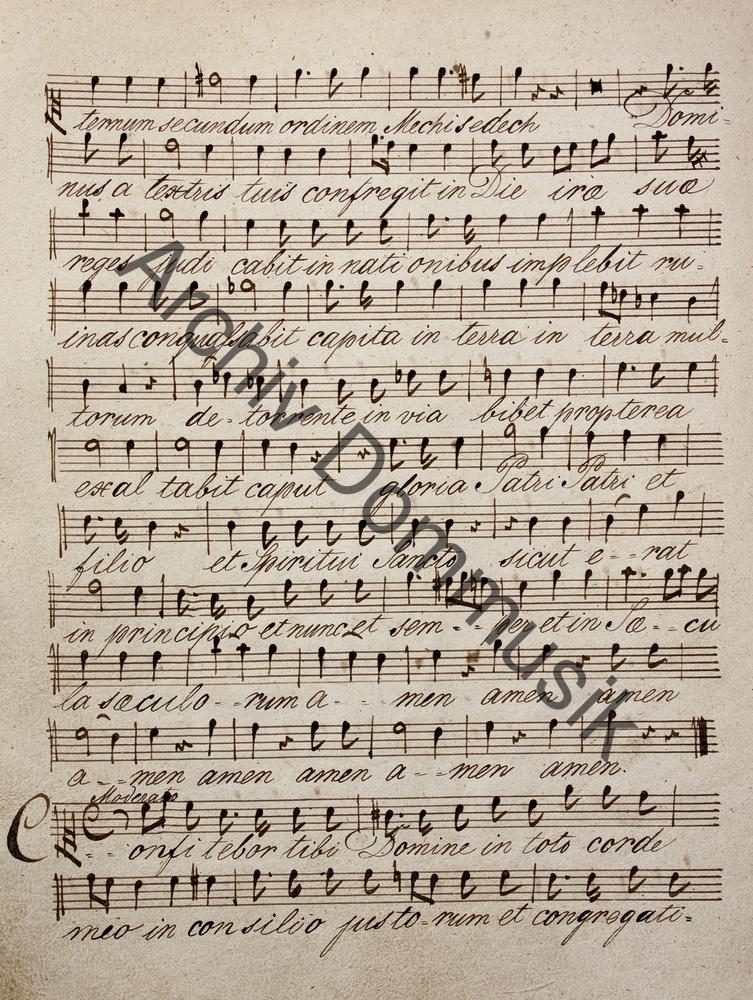 ternum secundum ordinem Mechisedech Domi-
nus a textris tuis confregit in Die iræ suæ
reges judi cabit in nati onibus implebit ru-
inas conquassabit capita in terra in terra mul-
torum de - torrente in via bibet propterea
exal tabit caput gloria Patri Patri et
filio et Spiritui Sancto sicut e - - rat
in principio et nunc et sem - - per et in Sæ - - cu
la sæculo - - rum a - - men amen amen
a - - men amen amen a - - men amen.
Moderato
C - - onfi tebor tibi Domine in toto corde
meo in con silio justo - rum et congregati-
Archiv Dommusik